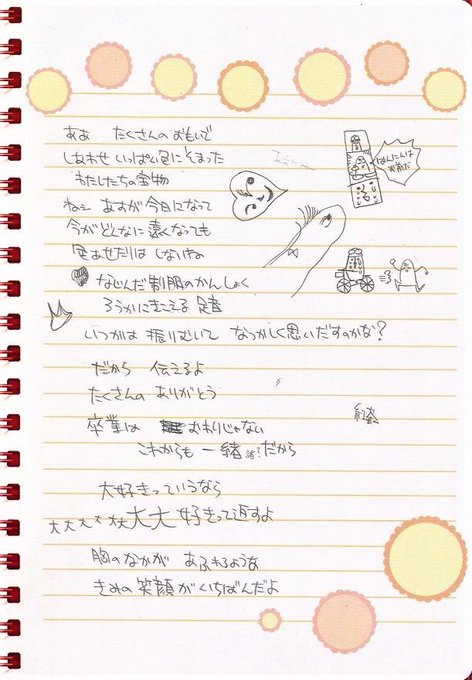 ああ たくさんのおもいで
しあわせいっぱい色にそまった
わたしたちの宝物
ねぇ あすが今日になって
今がどんなに遠くなっても
色あせたりは しないね
なじんだ制服のかんしょく
ろうかにきこえる足音
いつかは 振りむいて なつかしく思いだすのかな?
だから 伝えるよ
たくさんの ありがとう
卒業は おわりじゃない
これからも 一緒 だから
大好きっていうなら
大大大大大大大好きって返すよ
胸のなかが あふれるような
きみの笑顔がいちばんだよ
はんにんは
お前だ